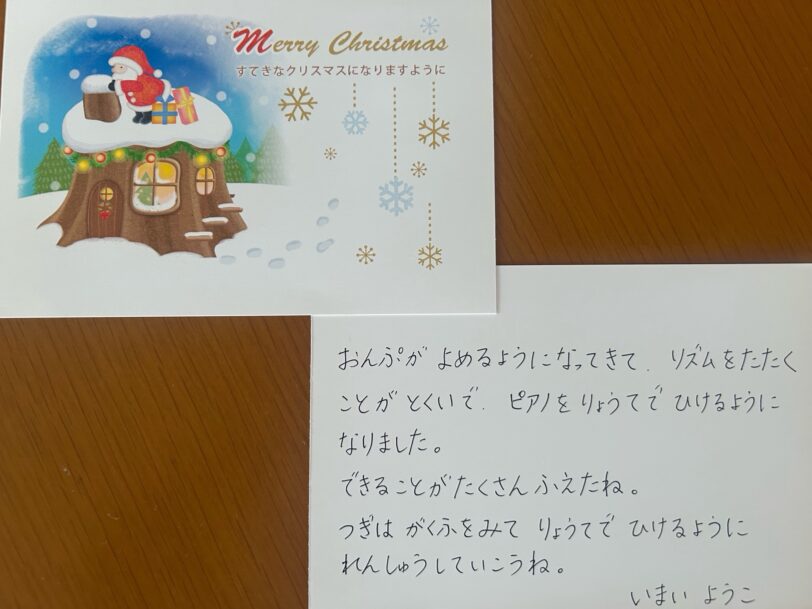 Merry Christmas
すてきなクリスマスになりますように
おんぷが よめるようになってきて、リズムをたたく
ことが とくいで、ピアノを りょうてで ひけるように
なりました。
できることが たくさん ふえたね。
つぎは がくふをみて りょうてで ひけるように
れんしゅうしていこうね。
いまい ようこ